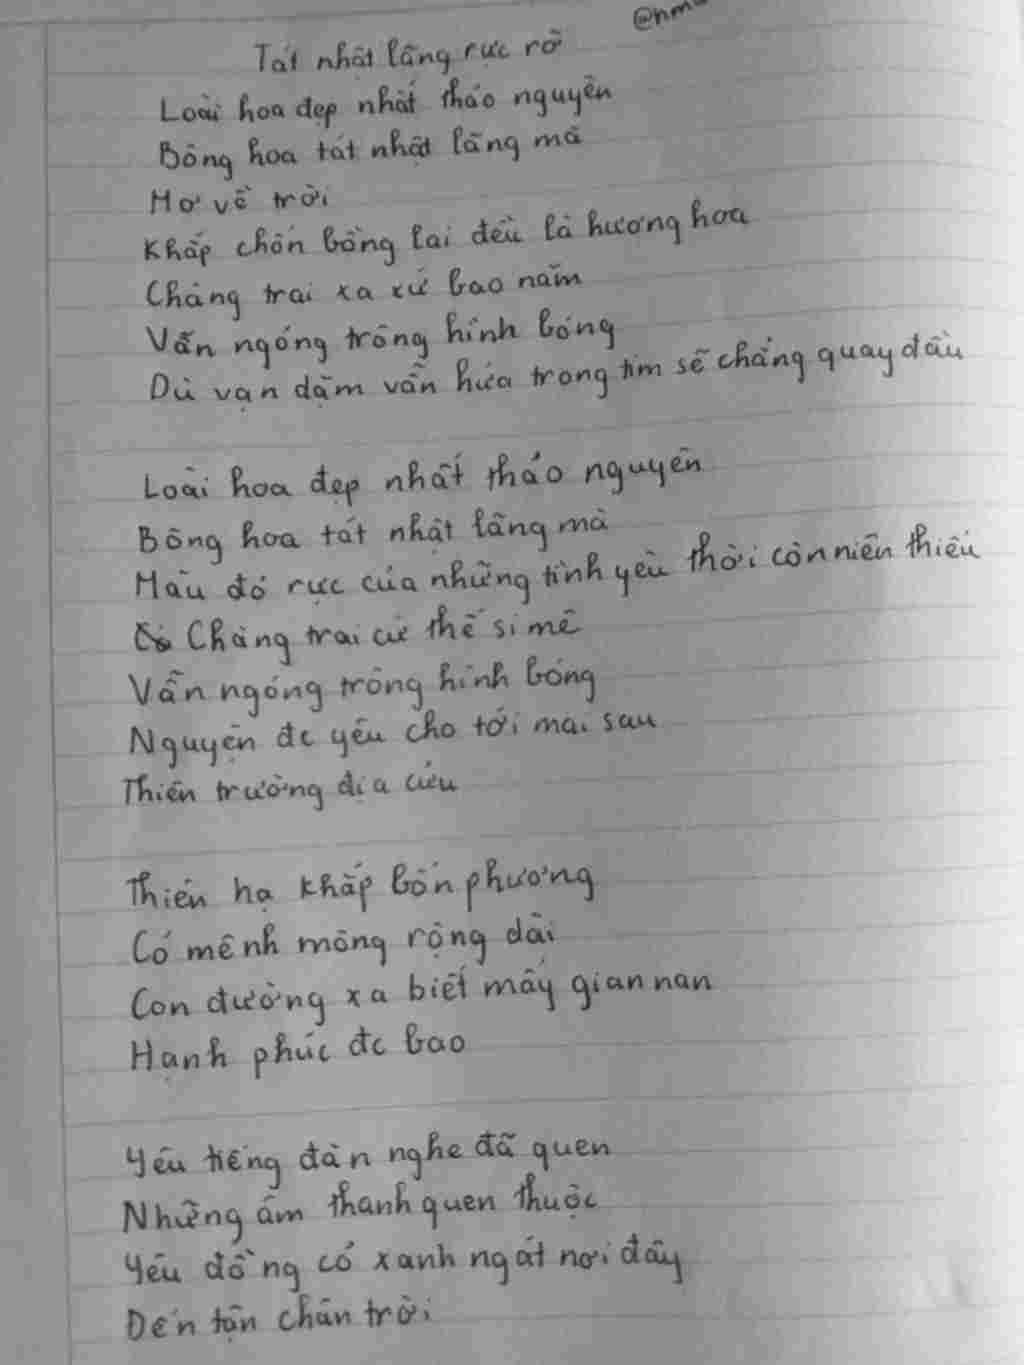 @hm
Tát nhật lãng rực rỡ
Loài hoa đẹp nhất thảo nguyên
Bông hoa tát nhật lãng mà
Mơ về trời
Khắp chốn bồng lai đều là hương hoa
Chàng trai xa xứ bao năm
Vẫn ngóng trông hình bóng
Dù vạn dặm vẫn hứa trong tim sẽ chẳng quay đầu
Loài hoa đẹp nhất thảo nguyên
Bông hoa tát nhật lãng mà
Màu đỏ rực của những tình yêu thời còn niên thiếu
Chàng trai cứ thế si mê
Vẫn ngóng trông hình bóng
Nguyện đc yêu cho tới mai sau
Thiên trường địa cửu
Thiên hạ khắp bốn phương
Cỏ mênh mông rộng dài
Con đường xa biết mấy gian nan
Hạnh phúc đc bao
Yêu tiếng đàn nghe đã quen
Những âm thanh quen thuộc
Yêu đồng cỏ xanh ngát nơi đây
Đến tận chân trời